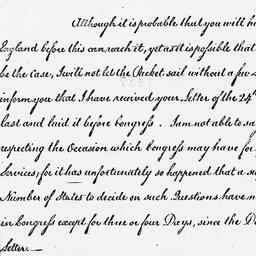 Although it is probable that you will ha
England before this can reach it, yet as it is possible that
be the case, I will not let the Packet sail without a few
inform you that I have received your Letter of the 24th
last and laid it before Congress. I am not able to say
respecting the Occasion which Congress may have for
Services; for it has unfortunately so happened that a su
Number of States to decide on such Questions have n
in Congress except for three or four Days, since the D
Letter.—